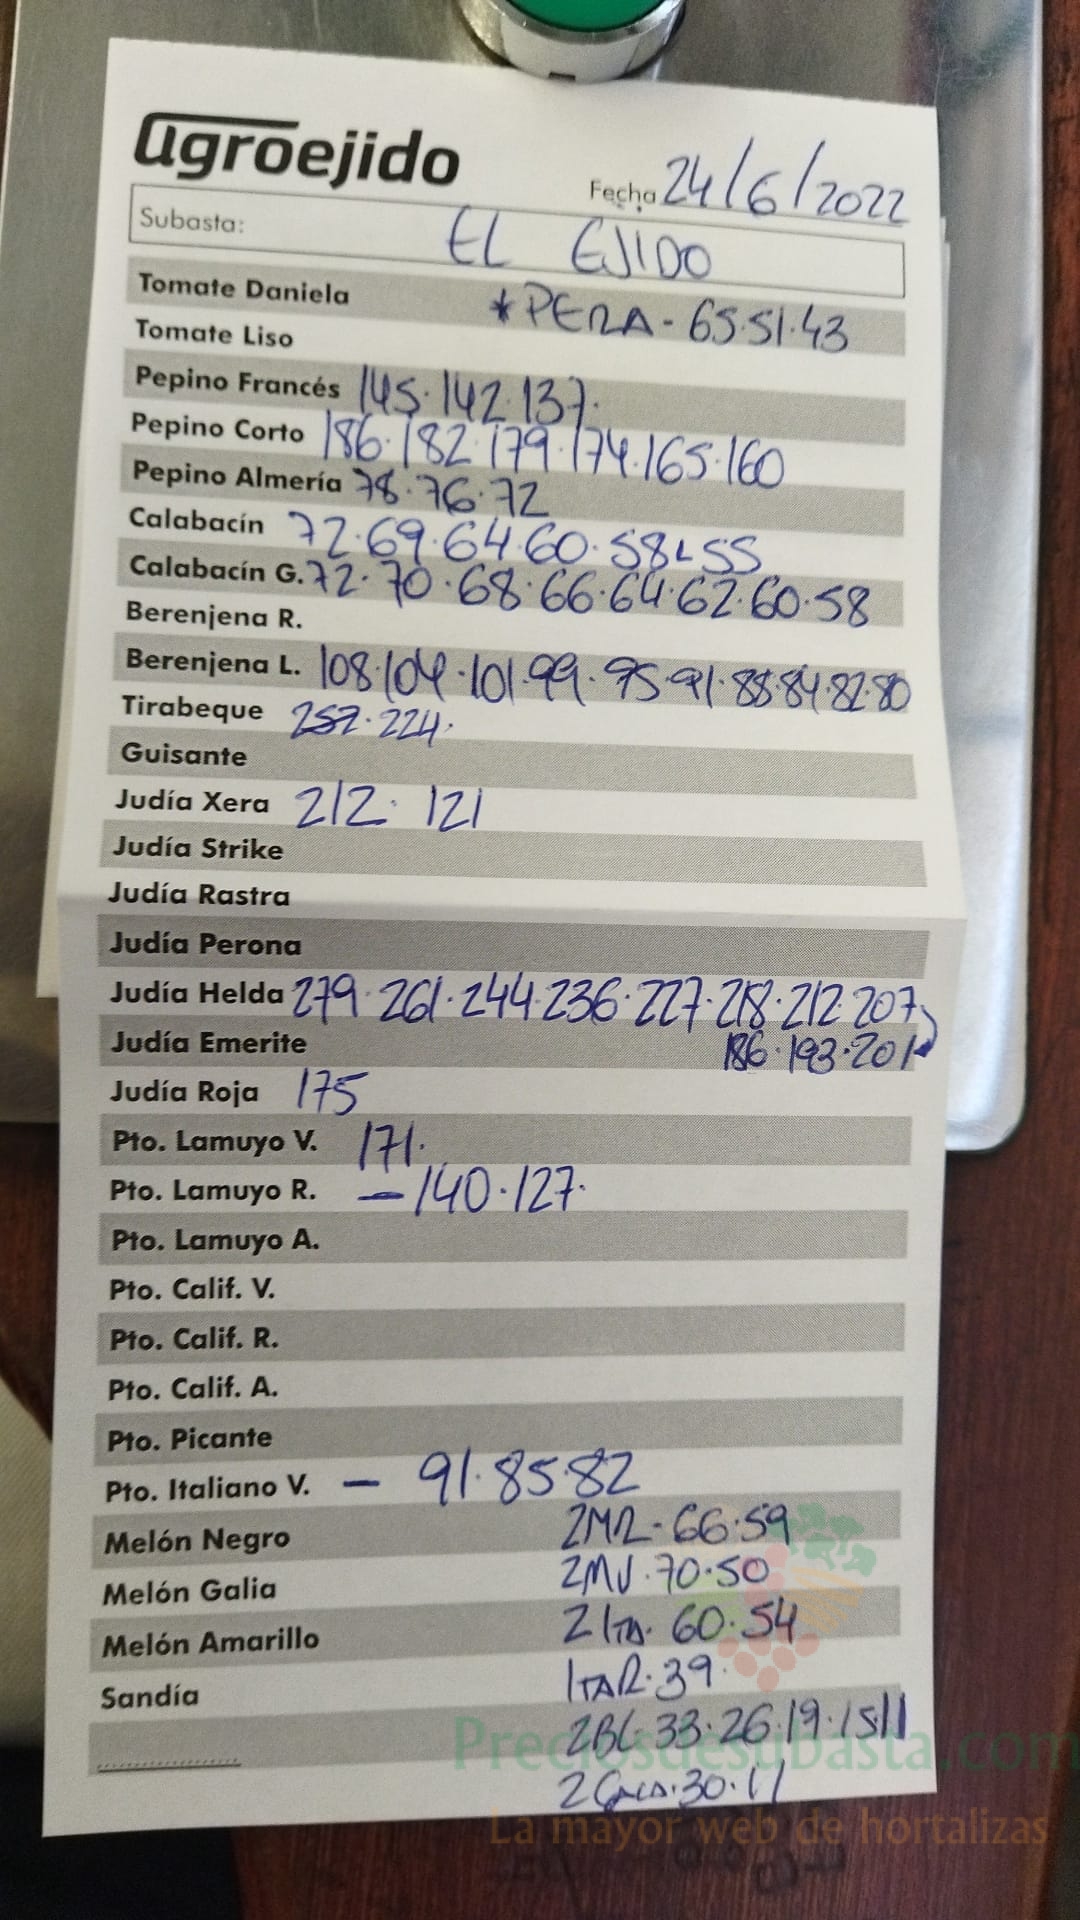 agroejido
Fecha 24/6/2022
Subasta: EL EJIDO
Tomate Daniela *PERA - 65.51.43
Tomate Liso
Pepino Francés 145.142.137.
Pepino Corto 186.182.179.174.165.160
Pepino Almería 78.76.72
Calabacín 72.69.64.60.58L55
Calabacín G. 72.70.68.66.64.62.60.58
Berenjena R.
Berenjena L. 108.104.101.99.95.91.88.84.82.80
Tirabeque 257.224.
Guisante
Judía Xera 212. 121
Judía Strike
Judía Rastra
Judía Perona
Judía Helda 279.261.244.236.227.218.212.207
Judía Emerite 186.193.201
Judía Roja 175
Pto. Lamuyo V. 171.
Pto. Lamuyo R. - 140.127.
Pto. Lamuyo A.
Pto. Calif. V.
Pto. Calif. R.
Pto. Calif. A.
Pto. Picante
Pto. Italiano V. - 91.85.82
Melón Negro 2MR - 66.59
Melón Galia 2MJ.70.50
Melón Amarillo 60.54
Sandía 39.
2BL.33.26.19.15.11
30.11
Preciosdesubasta.com
La mayor web de hortalizas